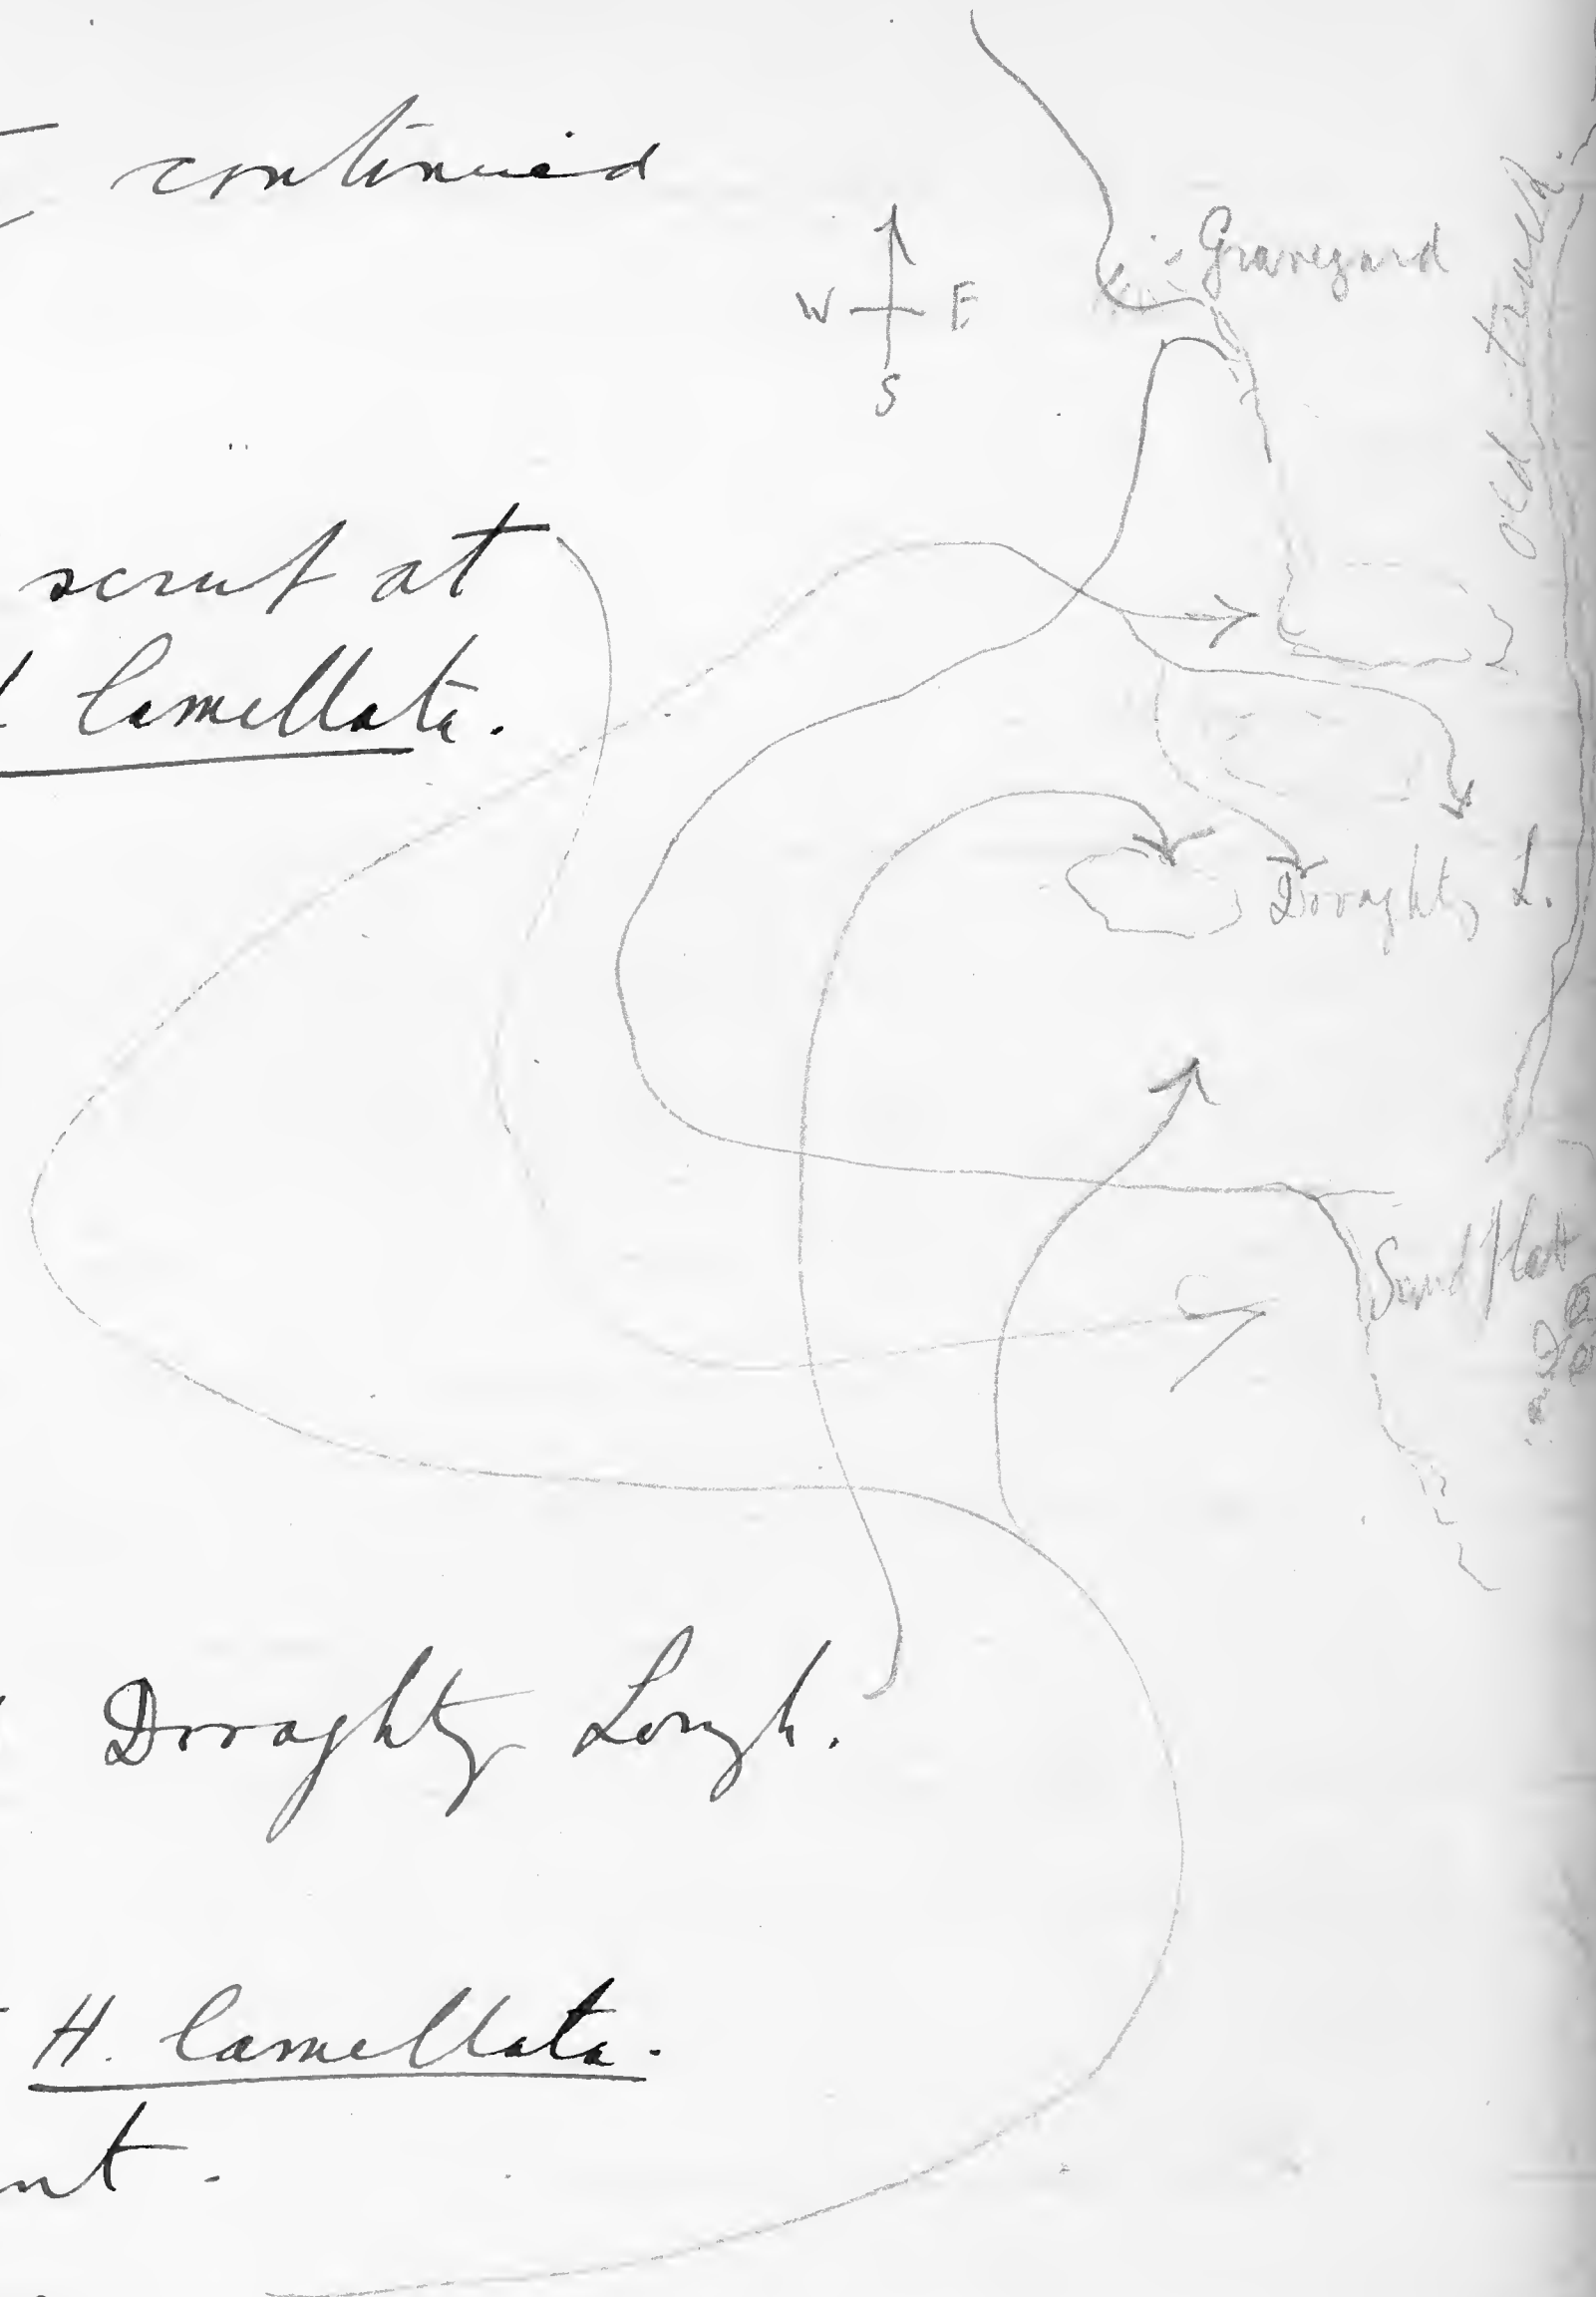 continued
Graveyard
W E
S
old
scrub at
lamellata.
Dooaghtry L.
Sand flat
Dooaghtry Lough.
H. lamellata.